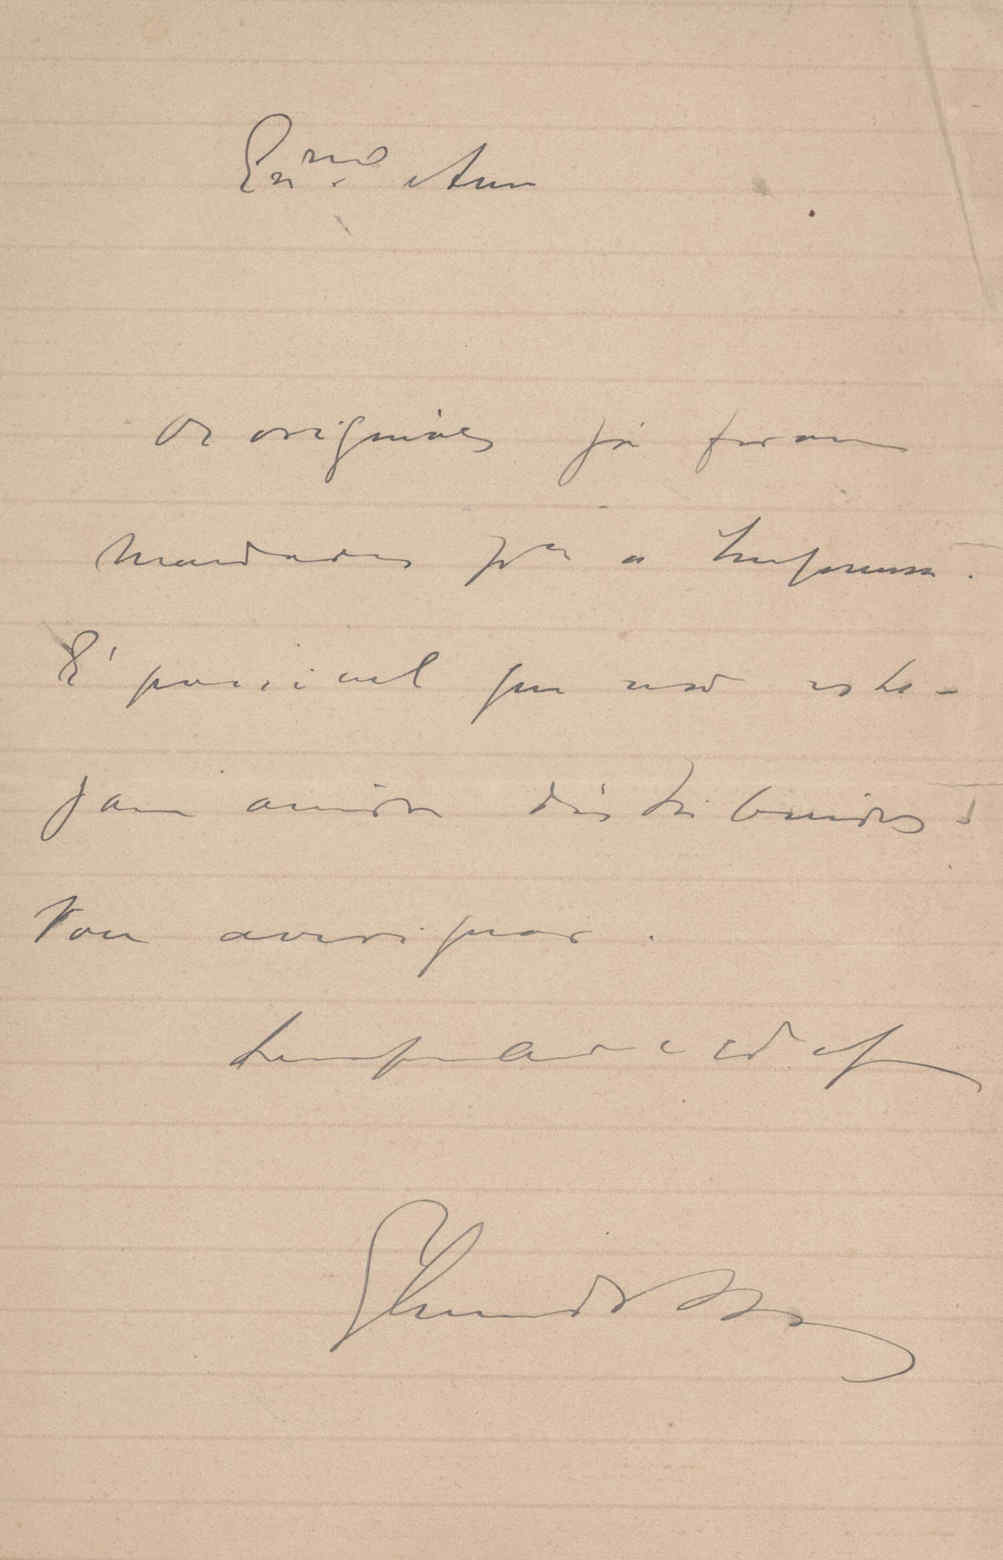 Exmo Amo
Os originaes já foram
mandados pra a Imprensa.
É possivel que não este-
jam ainda distribuidos.
Vou averiguar.